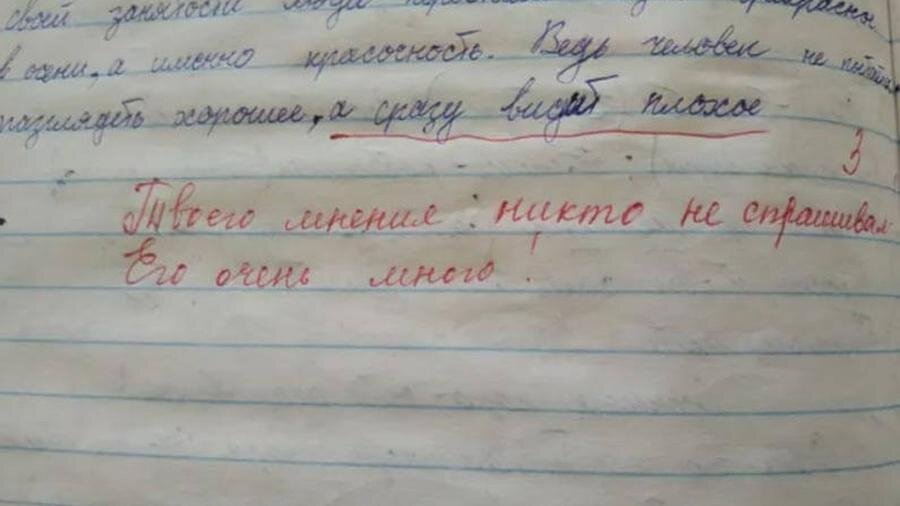 своей занятости люди
в осени, а именно красочность. Ведь человек не пытается
разглядеть хорошее, а сразу видит плохое
3
Твоего мнения никто не спрашивал.
Его очень много!